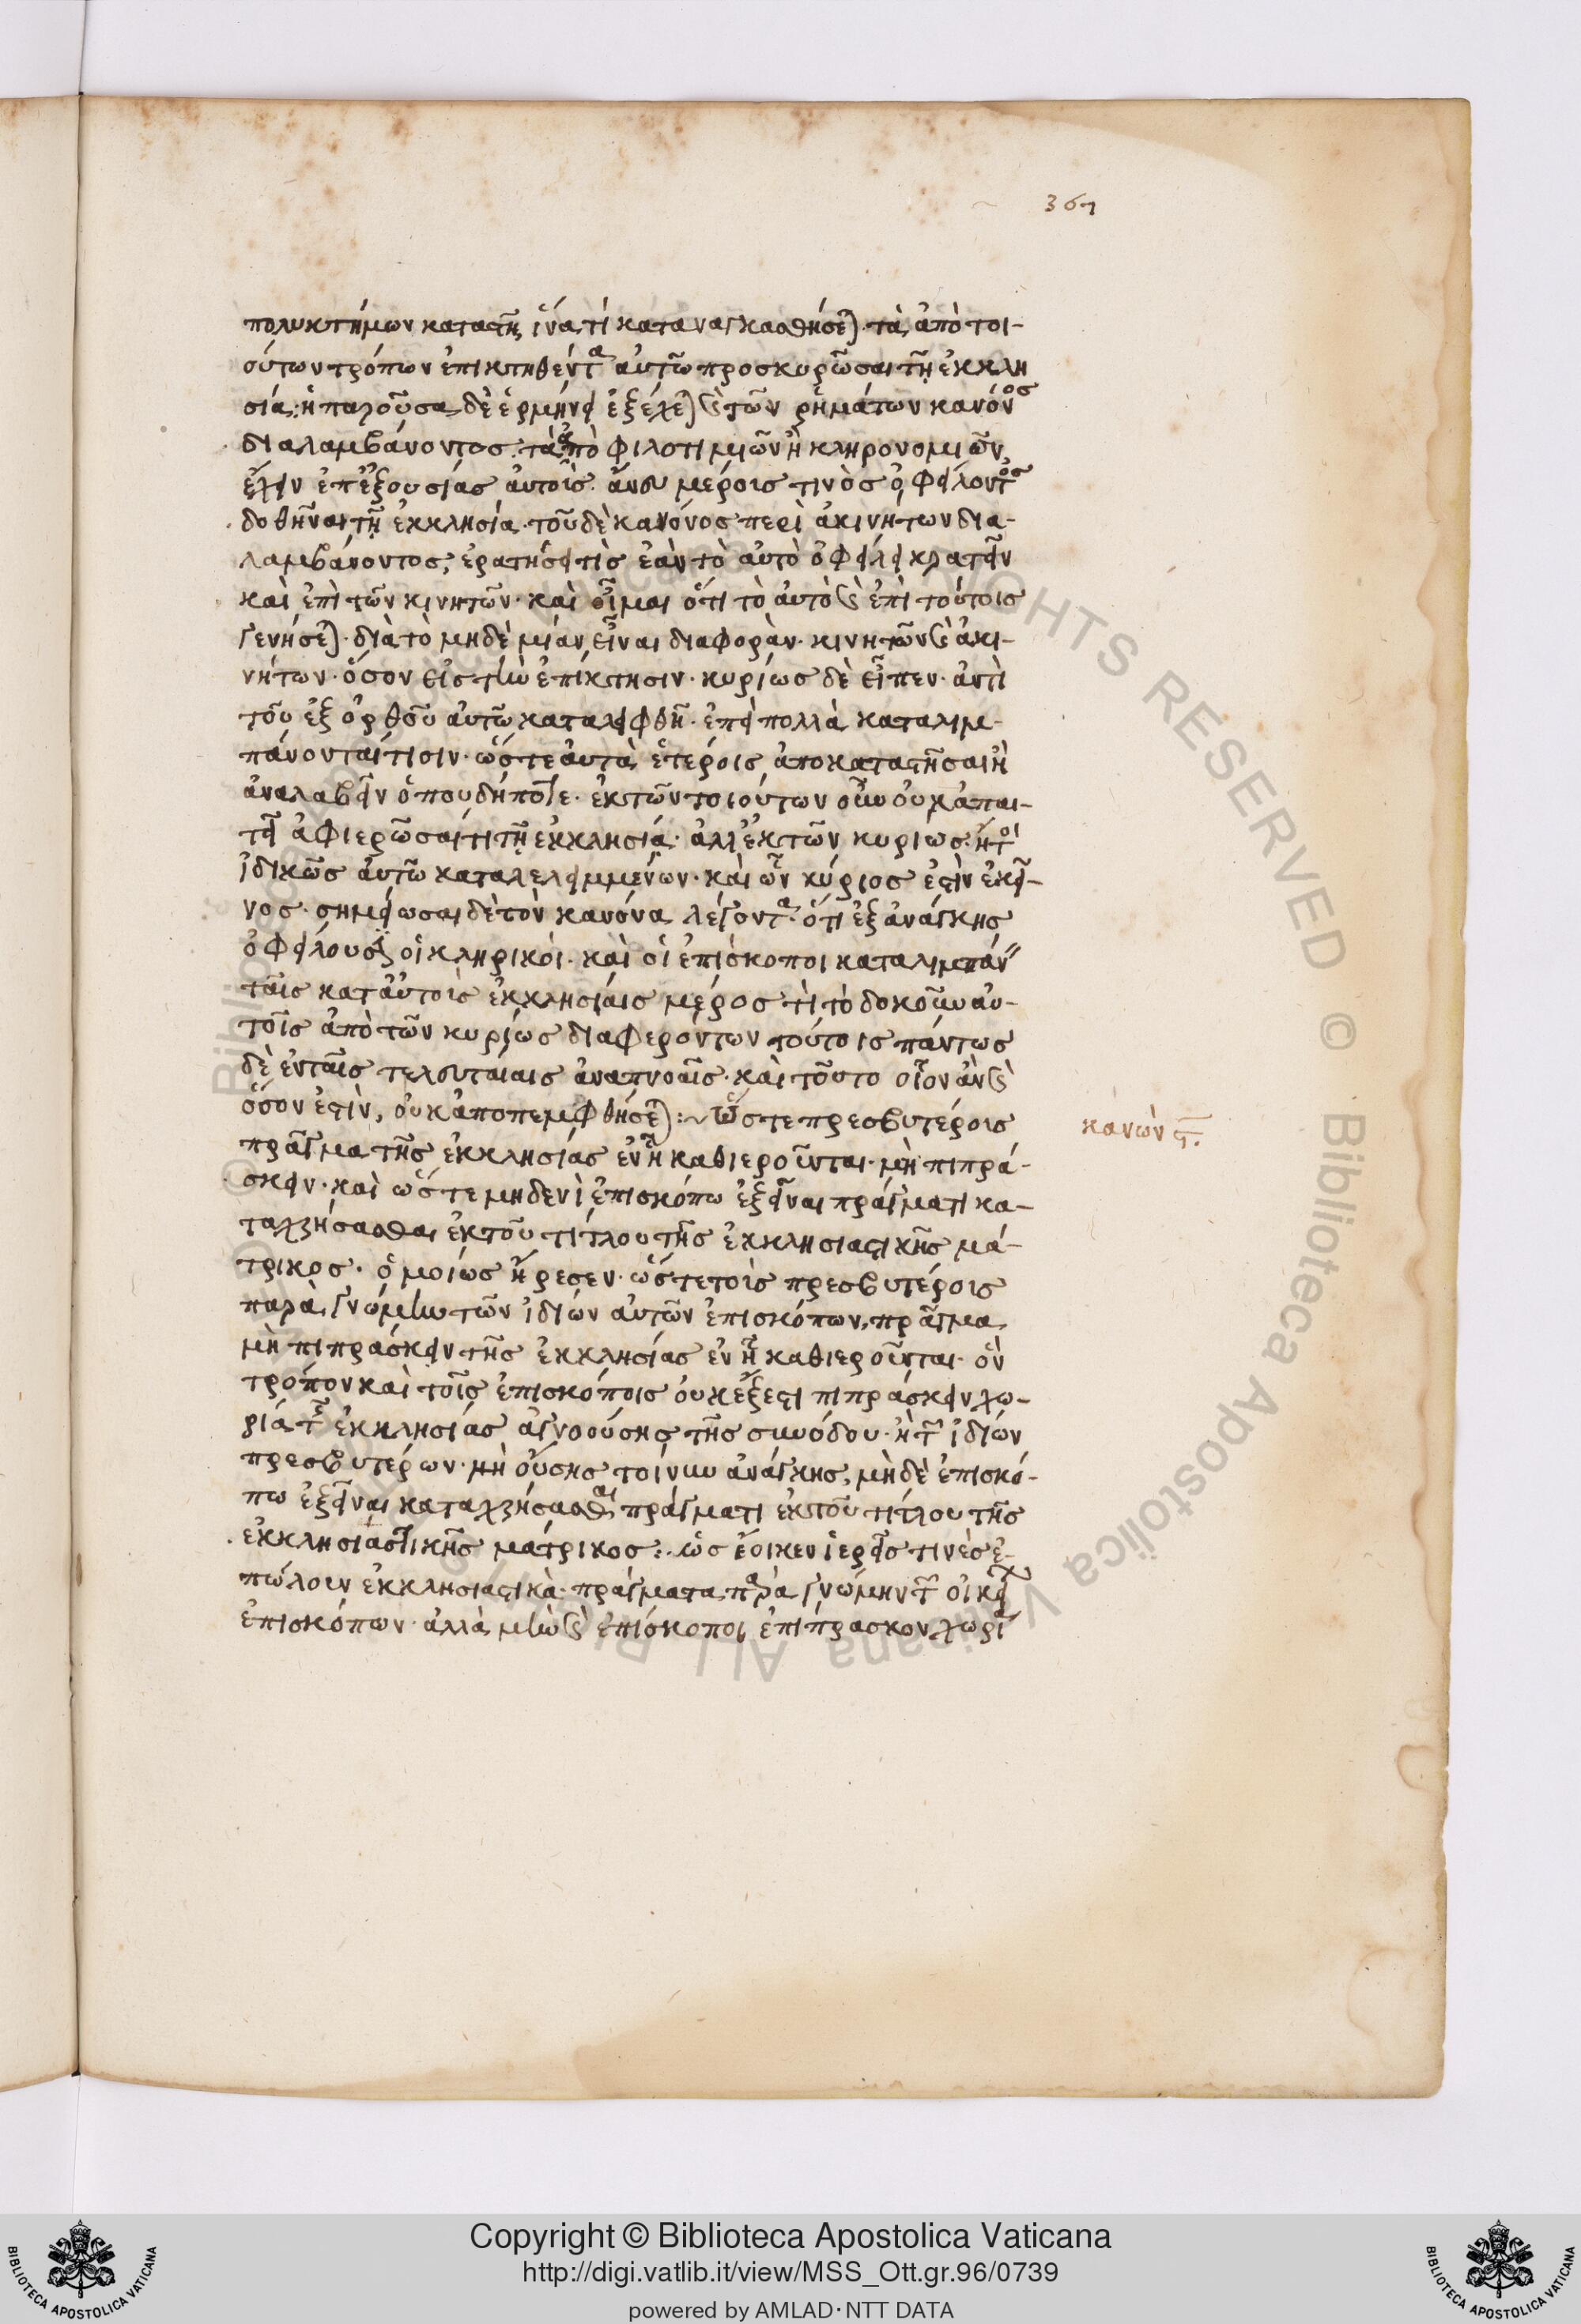 367
πολυκτήμων καταστῆ, ἵνα τί καταναγκασθήσεται τὰ ἀπὸ τοι-
ούτων τρόπων ἐπικτηθέντα αὐτῶ προσκυρῶσαι τῆ ἐκκλη
σία; ἡ παροῦσα δὲ ἑρμήνει ἐξέχεται καὶ τῶν ῥημάτων κανόνος
διαλαμβάνοντος. τὰ ἀπὸ φιλοτιμιῶν ἢ κληρονομιῶν
ἔχειν ἐπ' ἐξουσίας αὐτοῖς. ἄνευ μέροις τινὸς ὀφείλοντος
δοθῆναι τῆ ἐκκλησία. τοῦ δὲ κανόνος περὶ ἀκινήτων δια-
λαμβάνοντος, ἐρωτήσει τὶς ἐὰν τὸ αὐτὸ ὀφείλει κρατεῖν
καὶ ἐπὶ τῶν κινητῶν. καὶ οἶμαι ὅτι τὸ αὐτὸ καὶ ἐπὶ τούτοις
γενήσεται. διὰ τὸ μηδὲ μίαν εἶναι διαφορὰν. κινητῶν καὶ ἀκι-
νήτων. ὅσον εἰς τὴν ἐπίκτησιν. κυρίως δὲ εἶπεν. ἀντὶ
τοῦ ἐξ ὀρθοῦ αὐτῶ καταλειφθῆ. ἐπεὶ πολλὰ καταλιμ-
πάνονταί τισιν. ὥστε αὐτὰ ἑτέροις ἀποκαταστῆσαι ἢ
ἀναλαβεῖν ὁπουδήποτε. ἐκ τῶν τοιούτων οὖν οὐκ ἀπαι-
τεῖ ἀφιερῶσαί τι τῆ ἐκκλησία. ἀλλ' ἐκ τῶν κυρίως. ἤτοι
ἰδικῶς αὐτῶ καταλελειμμένων. καὶ ὧν κύριος ἐστὶν ἐκεῖ-
νος. σημείωσαι δὲ τὸν κανόνα λέγοντα. ὅτι ἐξ ἀνάγκης
ὀφείλουσιν οἱ κληρικοὶ. καὶ οἱ ἐπίσκοποι καταλιμπάνειν
ταῖς κατ' αὐτοὶς ἐκκλησίαις μέρος τὶ τὸ δοκοῦν αὐ-
τοῖς ἀπὸ τῶν κυρίως διαφερόντων τούτοις πάντως
δὲ ἐν ταῖς τελευταίαις ἀναπνοαῖς. καὶ τοῦτο οἷον ἀν καὶ
ὅσον ἐστὶν, οὐκ ἀποπεμφθήσεται:~ Ὥστε πρεσβυτέροις
κανὼν ϛ.
πρᾶγμα τῆς ἐκκλησίας ἐν ᾗ καθιεροῦνται. μὴ πιπρά-
σκειν. καὶ ὥστε μηδενὶ ἐπισκόπω ἐξεῖναι πράγματι κα-
ταχρήσασθαι ἐκ τοῦ τίτλου τῆς ἐκκλησιαστικῆς μά-
τρικος. ὁμοίως ἤρεσεν. ὥστε τοὶς πρεσβυτέροις
παρὰ γνώμην τῶν ἰδίων αὐτῶν ἐπισκόπων, πρᾶγμα
μὴ πιπράσκειν τῆς ἐκκλησίας ἐν ᾗ καθιεροῦνται. ὃν
τρόπον καὶ τοῖς ἐπισκόποις οὐκ ἔξεστι πιπράσκειν χω-
ρία τῆς ἐκκλησίας ἀγνοούσης τῆς συνόδου. ἢ τῶν ἰδίων
πρεσβυτέρων. μὴ οὔσης τοίνυν ἀνάγκης, μὴ δὲ ἐπισκό-
πω ἐξεῖναι καταχρήσασθαι πράγματι ἐκ τοῦ τίτλου τῆς
ἐκκλησιαστικῆς μάτρικος:. ὡς ἔοικεν ἱερεῖς τινὲς ἐ-
πώλουν ἐκκλησιαστικὰ πράγματα παρὰ γνώμην τῶν οἰκείων
ἐπισκόπων. ἀλλὰ μὴν καὶ ἐπίσκοποι ἐπίπρασκον χωρία
Copyright © Biblioteca Apostolica Vaticana
http://digi.vatlib.it/view/MSS_Ott.gr.96/0739
powered by AMLAD·NTT DATA